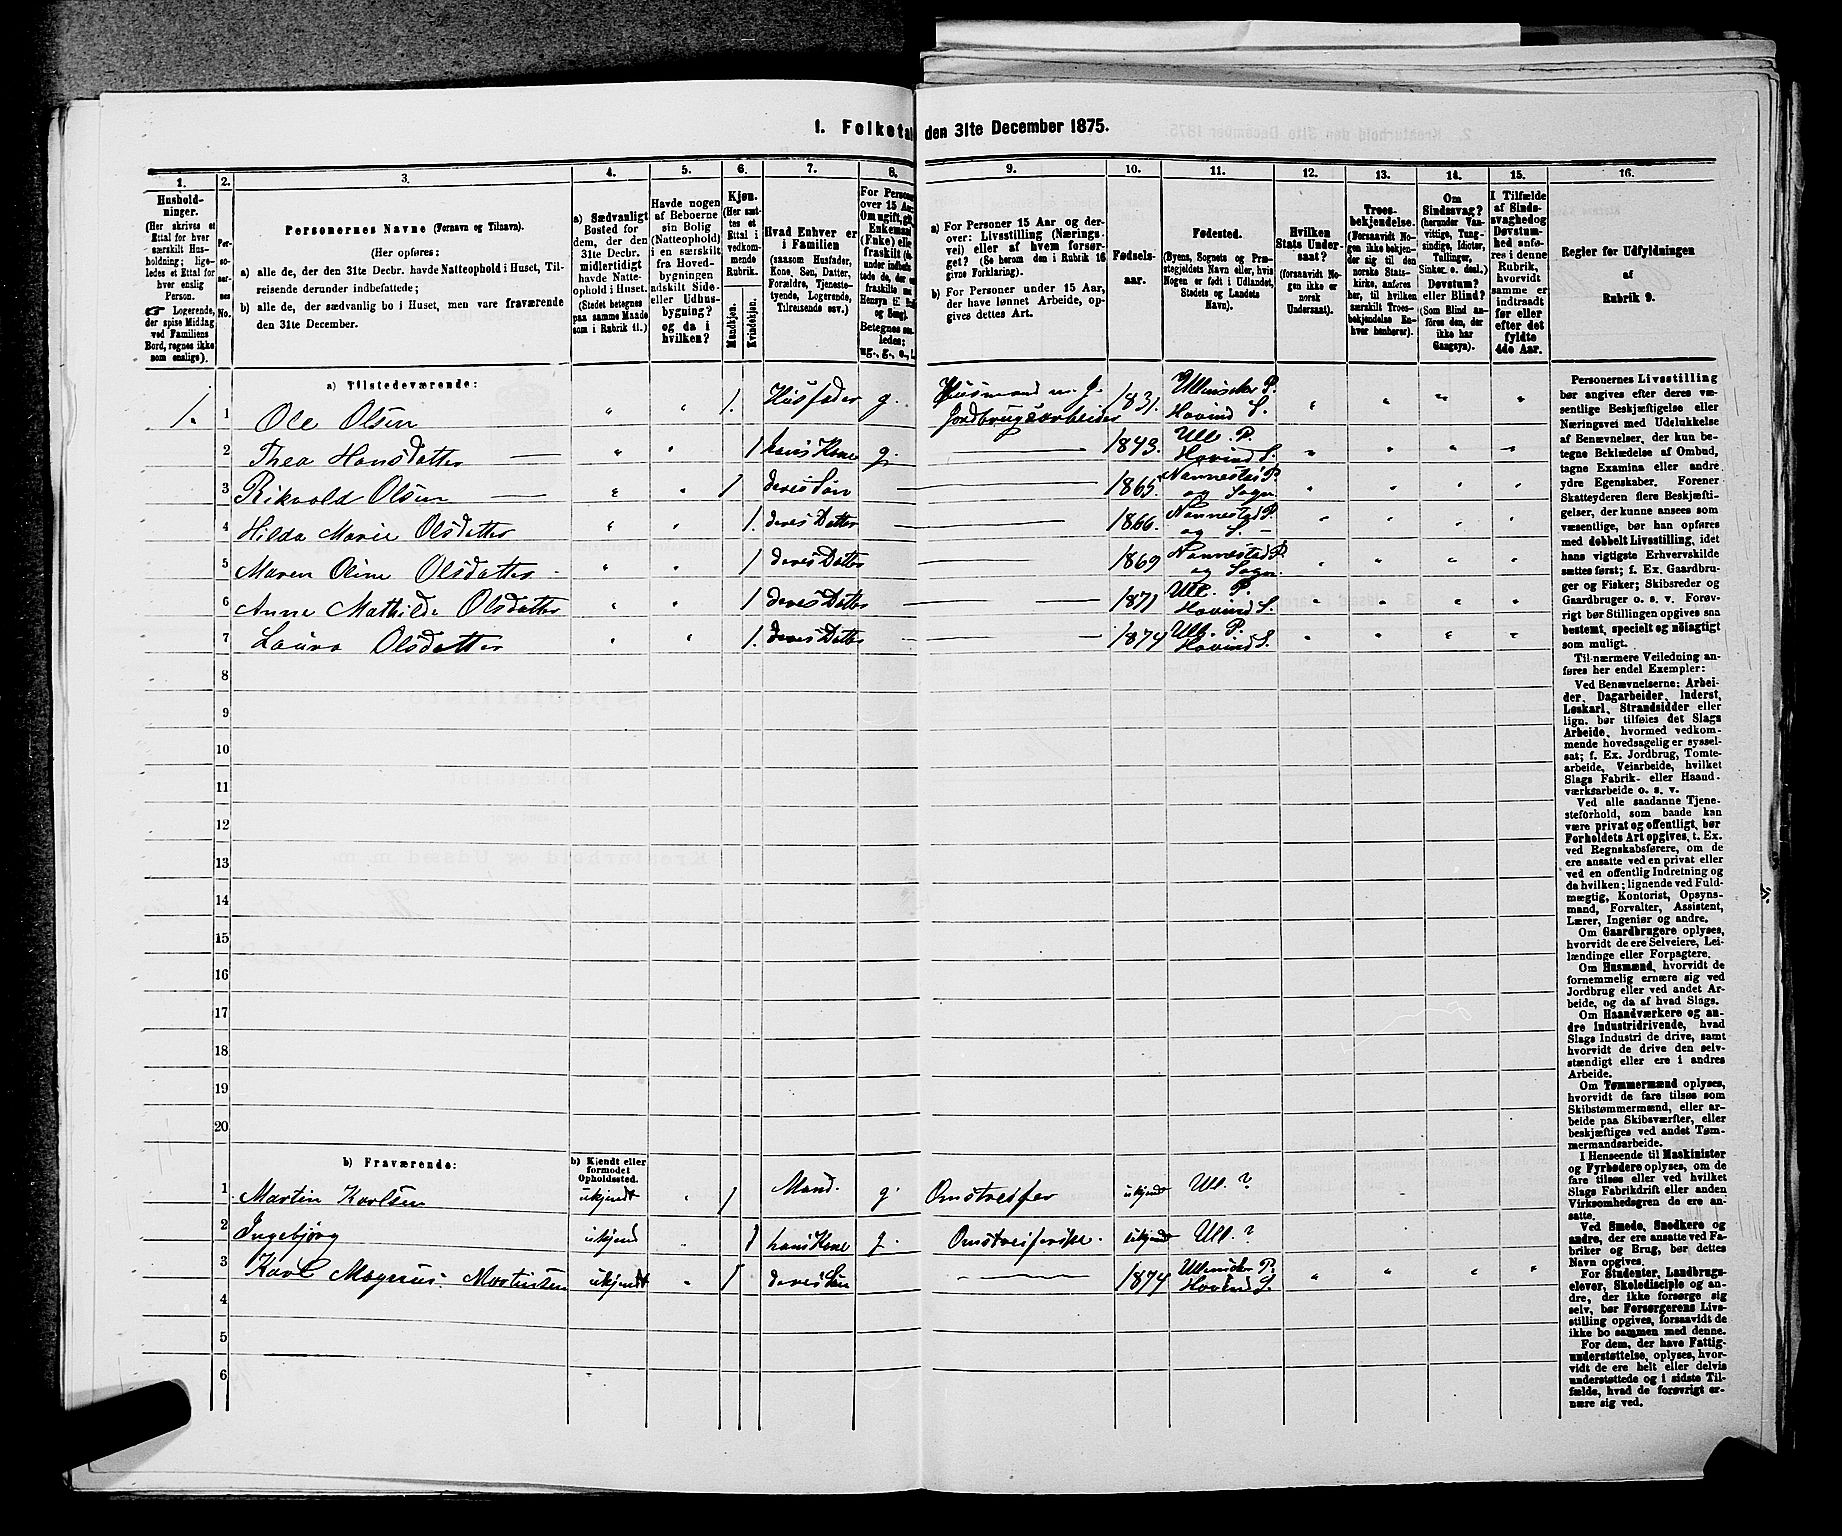 1. Folketal den 31te December 1875.
1. 2. 3. 4. 5. 6. 7. 8. 9. 10. 11. 12. 13. 14. 15. 16.
Hushold-
ninger.
(Her skrives et
Ettal for hver
særskilt Hus-
holdning; lige-
ledes et Ettal for
hver enslig
Person.
☛ Logerende,
der spise Middag
ved Familiens
Bord, regnes ikke
som enslige).
Per-
so-
ner-
nes
No.
Personernes Navne (Fornavn og Tilnavn).
(Her opføres:
a) alle de, der den 31te Decbr. havde Natteophold i Huset, Til-
reisende derunder indbefattede;
b) alle de, der sædvanlig bo i Huset, men vare fraværende
den 31te December.
a) Sædvanligt
Bosted for
dem, der den
31te Decbr.
midlertidigt
havde Natte-
ophold i Huset.
(Stedet betegnes
paa samme Maade
som i Rubrik 11.)
Havde nogen
af Beboerne
sin Bolig
(Natteophold)
i en særskilt
fra Hoved-
bygningen
adskilt Side-
eller Udhus-
bygning?
og da i
hvilken?
Kjøn.
(Her sæt-
tes et
Ettal i
vedkom-
mende
Rubrik.
Mandkjøn.
Kvindekjøn.
Hvad Enhver er
i Familien
(saasom Husfader,
Kone, Søn, Datter,
Forældre, Tjeneste-
tyende, Logerende,
Tilreisende osv.)
For Person
over 15 Aar
Om ugift, gif
Enkemand
(Enke) elle
fraskilt
Betegnes saa-
ledes:
ug., g., e., f.
a) For Personer 15 Aar og der-
over: Livsstilling (Nærings-
vei) eller af hvem forsør-
get? (Se herom den i Rubrik 16
givne Forklaring).
b) For Personer under 15 Aar,
der have lønnet Arbeide, op-
gives dettes Art.
Fødsels-
aar.
Fødested.
(Byens, Sognets og Præ-
stegjeldets Navn eller, hvis
Nogen er født i Udlandet,
Stedets og Landets
Navn).
Hvilken
Stats Under-
saat?
(forsaavidt No-
gen ikke er
norsk
Undersaat).
Troes-
bekjendelse.
(Forsaavidt No-
gen ikke bekjen-
der sig til den
norske Stats-
kirke, anføres
her, til hvilken
særskilt Troes-
bekjendelse En-
hver henhører).
Om
Sindssvag?
(herunder Van-
vittige, Tung-
sindige, Idioter,
Tullinger,
Sinker o. desl.)
Døvstum?
eller Blind?
(Som Blind an-
føres den, der
ikke har
Gangsyn).
I Tilfælde
af Sinds-
svaghed og
Døvstum-
hed anfø-
res i denne
Rubrik,
hvorvidt
samme er
indtraadt
før eller
efter det
fyldte
4de Aar.
Regler for Udfyldningen
af
Rubrik 9.
a) Tilstedeværende:
1. 1 Ole Olsen " " 1. Husfader g. Husmand m. J. Jordbrugsarbeider 1831. Ullensaker P. Hovind S. " " " "
2 Thea Hansdatter " " 1 hans Kone g. 1843. Ull. P. Hovind S. " " " "
3 Rikvold Olsen " " 1 deres Søn 1865 Nannestad P. og Sogn " " " "
4 Hilda Marie Olsdatter " " 1. deres Datter 1866. Nannestad P. og S. " " " "
5 Maren Oline Olsdatter " " 1 deres Datter 1869 Nannestad P. og Sogn " " " "
6 Anne Mathilde Olsdatter " " 1 deres Datter 1871 Ull. P. Hovind S. " " " "
7 Laura Olsdatter " " 1. deres Datter 1874 Ull. P. Hovind S. " " " "
8
9
10
11
12
13
14
15
16
17
18
19
20
b) Fraværende:
b) Kjendt eller
formodet
Opholdssted.
1 Martin Karlsen ukjendt " 1 Mand. g. Omstreifer ukjendt Ull. ?
2 Ingebjørg ukjend " 1 hans Kone g. Omstreiferske. ukjendt Ull. ?
3 Karl Magnus Martinsen ukjendt " 1 deres Søn 1874 Ullensaker P. Hovind S. " " " "
4
5
6
Personernes Livsstilling
bør angives efter deres væ-
sentlige Beskjæftigelse eller
Næringsvei med Udelukkelse
af Benævnelser, der kun be-
tegne Beklædelse af Ombud,
tagne Examina eller andre
ydre Egenskaber. Forener
Skatteyderen flere Beskjæfti-
gelser, der kunne ansees som
væsentlige, bør han opføres
med dobbelt Livsstilling, idet
hans vigtigste Erhvervskilde
sættes først; f. Ex. Gaardbru-
ger og Fisker; Skibsreder og
Gaardbruger o. s. v. Forøv-
rigt bør Stillingen opgives saa
bestemt, specielt og nøiagtigt
som muligt.
Til nærmere Veiledning an-
føres her endel Exempler:
Ved Benævnelserne: Arbei-
der, Dagarbeider, Inderst,
Løskarl, Strandsidder eller
lign. bør tilføies det Slags
Arbeide, hvormed vedkom-
mende hovedsagelig er syssel-
sat; f. Ex. Jordbrug, Tomte-
arbeide, Veiarbeide, hvilket
Slags Fabrik- eller Haand-
værksarbeide o. s. v.
Ved alle saadanne Tjene-
steforhold, som baade kan
være privat og offentligt, bør
Forholdets Art opgives, t. Ex.
ved Regnskabsførere, om de
ere ansatte ved en privat eller
ved en offentlig Indretning og
da hvilken; lignende ved Fuld-
mægtig, Kontorist, Opsyns-
mand, Forvalter, Assistent,
Lærer, Ingeniør og andre.
Om Gaardbrugere oplyses,
hvorvidt de ere Selveiere, Lei-
lændinge eller Forpagtere.
Om Husmænd, hvorvidt de
fornemmelig ernære sig ved
Jordbrug eller ved andet Ar-
beide, og da af hvad Slags.
Om Haandværkere og an-
dre Industridrivende, hvad
Slags Industri de drive, samt
hvorvidt de drive den selv-
stændigt eller ere i andres
Arbeide.
Om Tømmermænd oplyses,
hvorvidt de fare tilsøs som
Skibstømmermænd, eller ar-
beide paa Skibsværfter, eller
beskjæftiges ved andet Tøm-
mermandsarbeide.
I Henseende til Maskinister
og Fyrbødere oplyses, om de
fare tilsøs eller ved hvilket
Slags Fabrikdrift eller anden
Virksomhedsgren de ere an-
satte.
Ved Smede, Snedkere og
andre, der ere ansatte ved Fa-
briker og Brug, bør dettes
Navn opgives.
For Studenter, Landbrugs-
elever, Skoledisciple og an-
dre, der ikke forsørge sig
selv, bør Forsørgerens Livs-
stilling opgives, forsaavidt de
ikke bo sammen med denne.
For dem, der have Fattig-
understøttelse, oplyses, hvor-
vidt de ere helt eller delvis
understøttede og i sidste Til-
fælde, hvad de forøvrigt er-
nære sig ved.